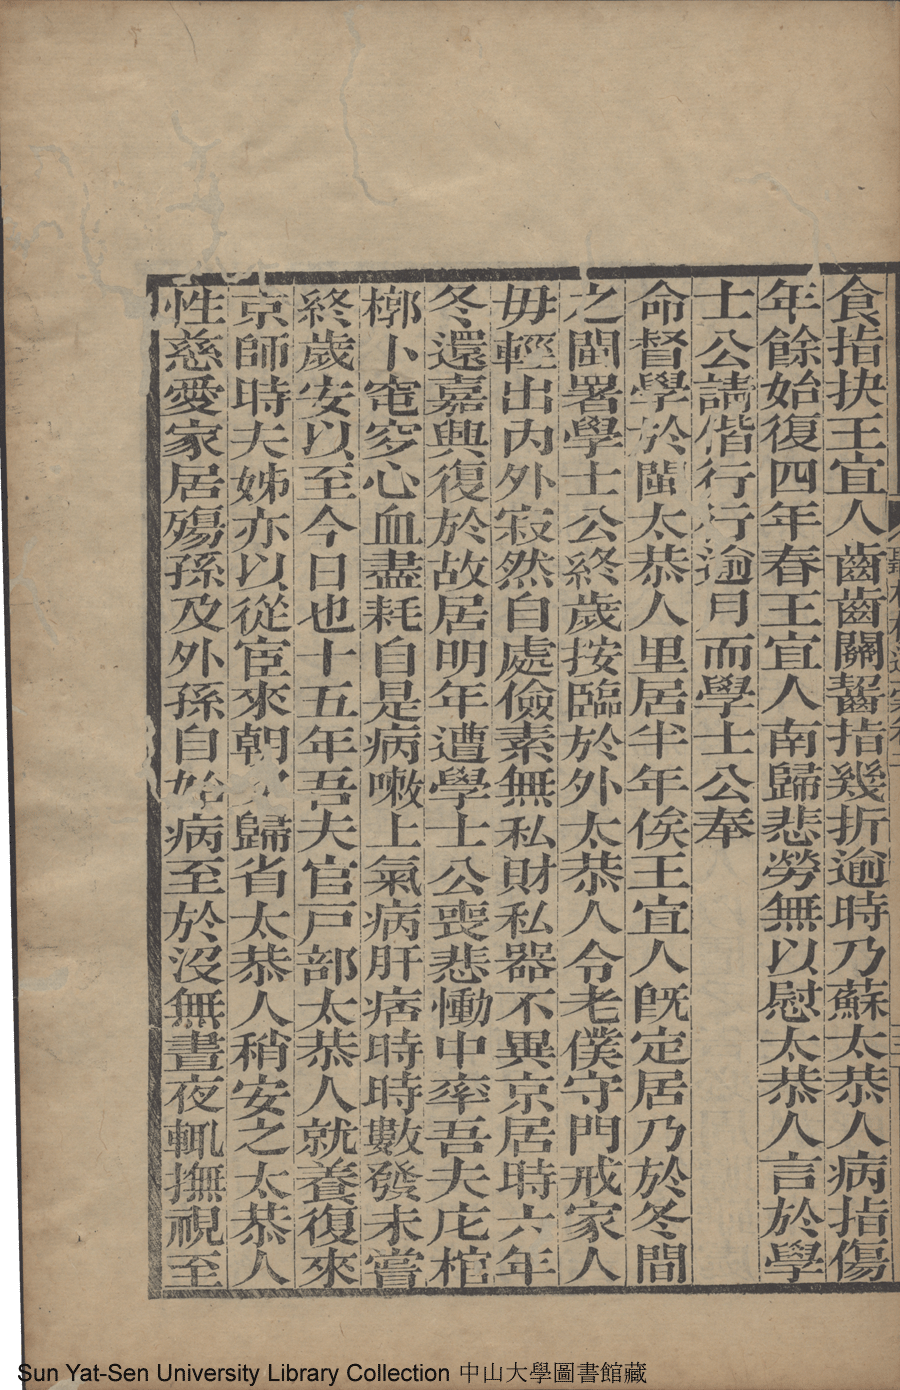 食指抉王宜人齒齒關齧指幾折逾時乃蘇太恭人病指傷
年餘始復四年春王宜人南歸悲勞無以慰太恭人言於學
士公請偕行行逾月而學士公奉
命督學於閩太恭人里居半年俟王宜人旣定居乃於冬間
之閩署學士公終歲按臨於外太恭人令老僕守門戒家人
毋輕出內外寂然自處儉素無私財私器不異京居時六年
冬還嘉興復於故居明年遭學士公喪悲慟中率吾夫庀棺
槨卜窀穸心血盡耗自是病嗽上氣病肝痞時時數發未嘗
終歲安以至今日也十五年吾夫官戸部太恭人就養復來
京師時大姊亦以從宦來朝夕歸省太恭人稍安之太恭人
性慈愛家居殤孫及外孫自始病至於沒無晝夜輒撫視至
Sun Yat-Sen University Library Collection 中山大學圖書館藏